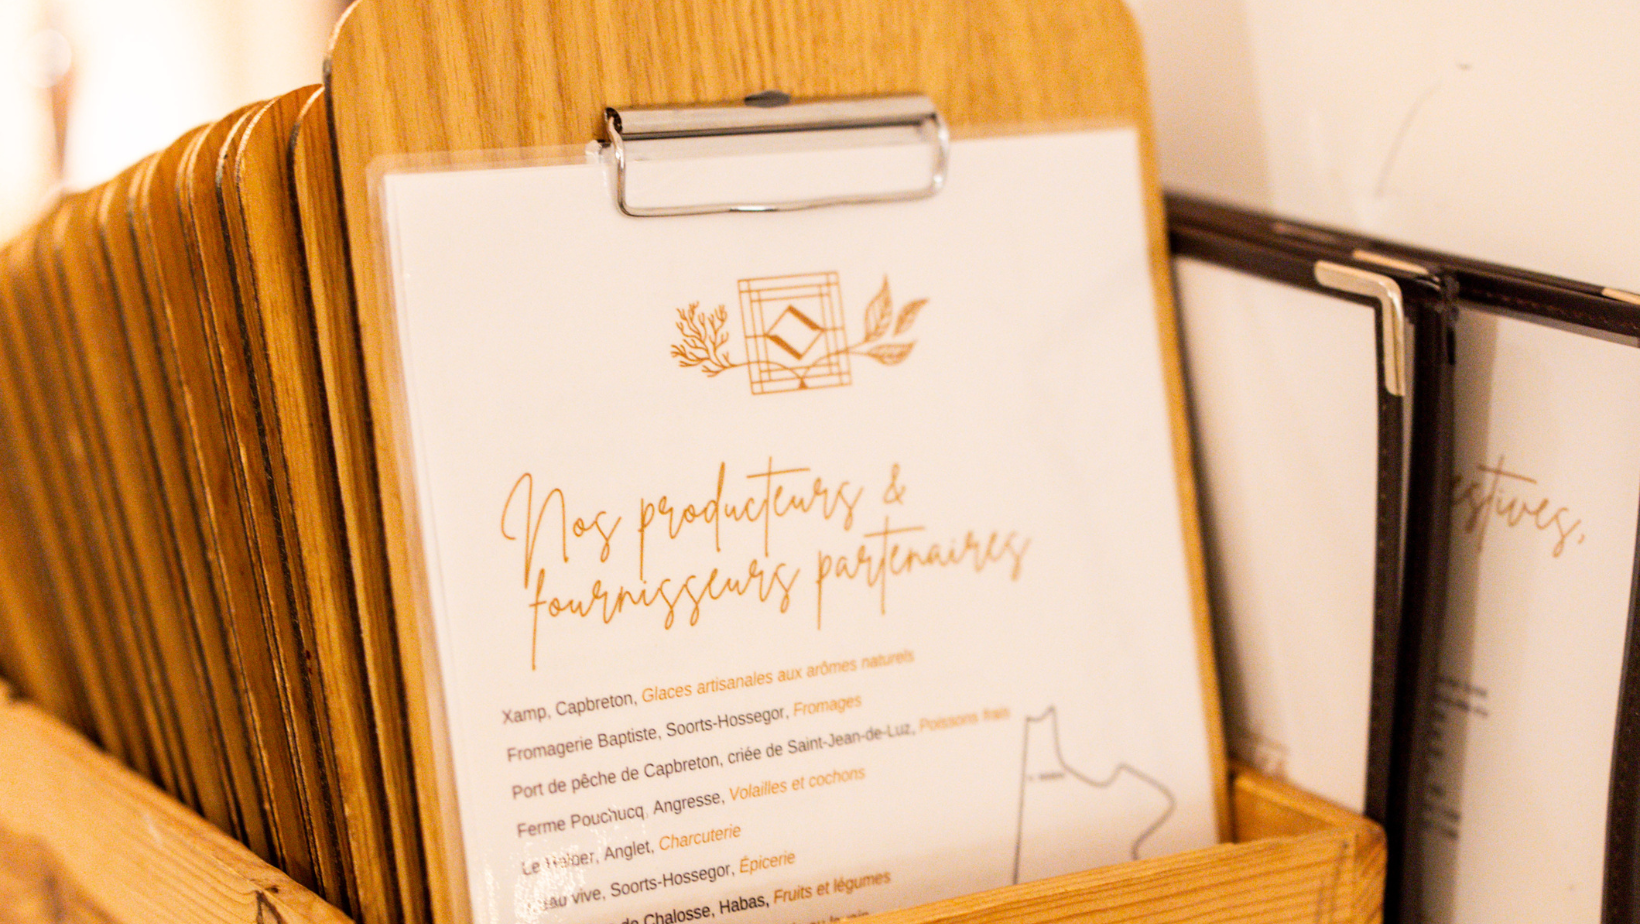 Nos producteurs &
fournisseurs partenaires
Xamp, Capbreton, Glaces artisanales aux arômes naturels
Fromagerie Baptiste, Soorts-Hossegor, Fromages
Port de pêche de Capbreton, criée de Saint-Jean-de-Luz, Poissons frais
Ferme Pouchucq, Angresse, Volailles et cochons
Le Anglet, Charcuterie
vive, Soorts-Hossegor, Épicerie
de Chalosse, Habas, Fruits et légumes
estives,